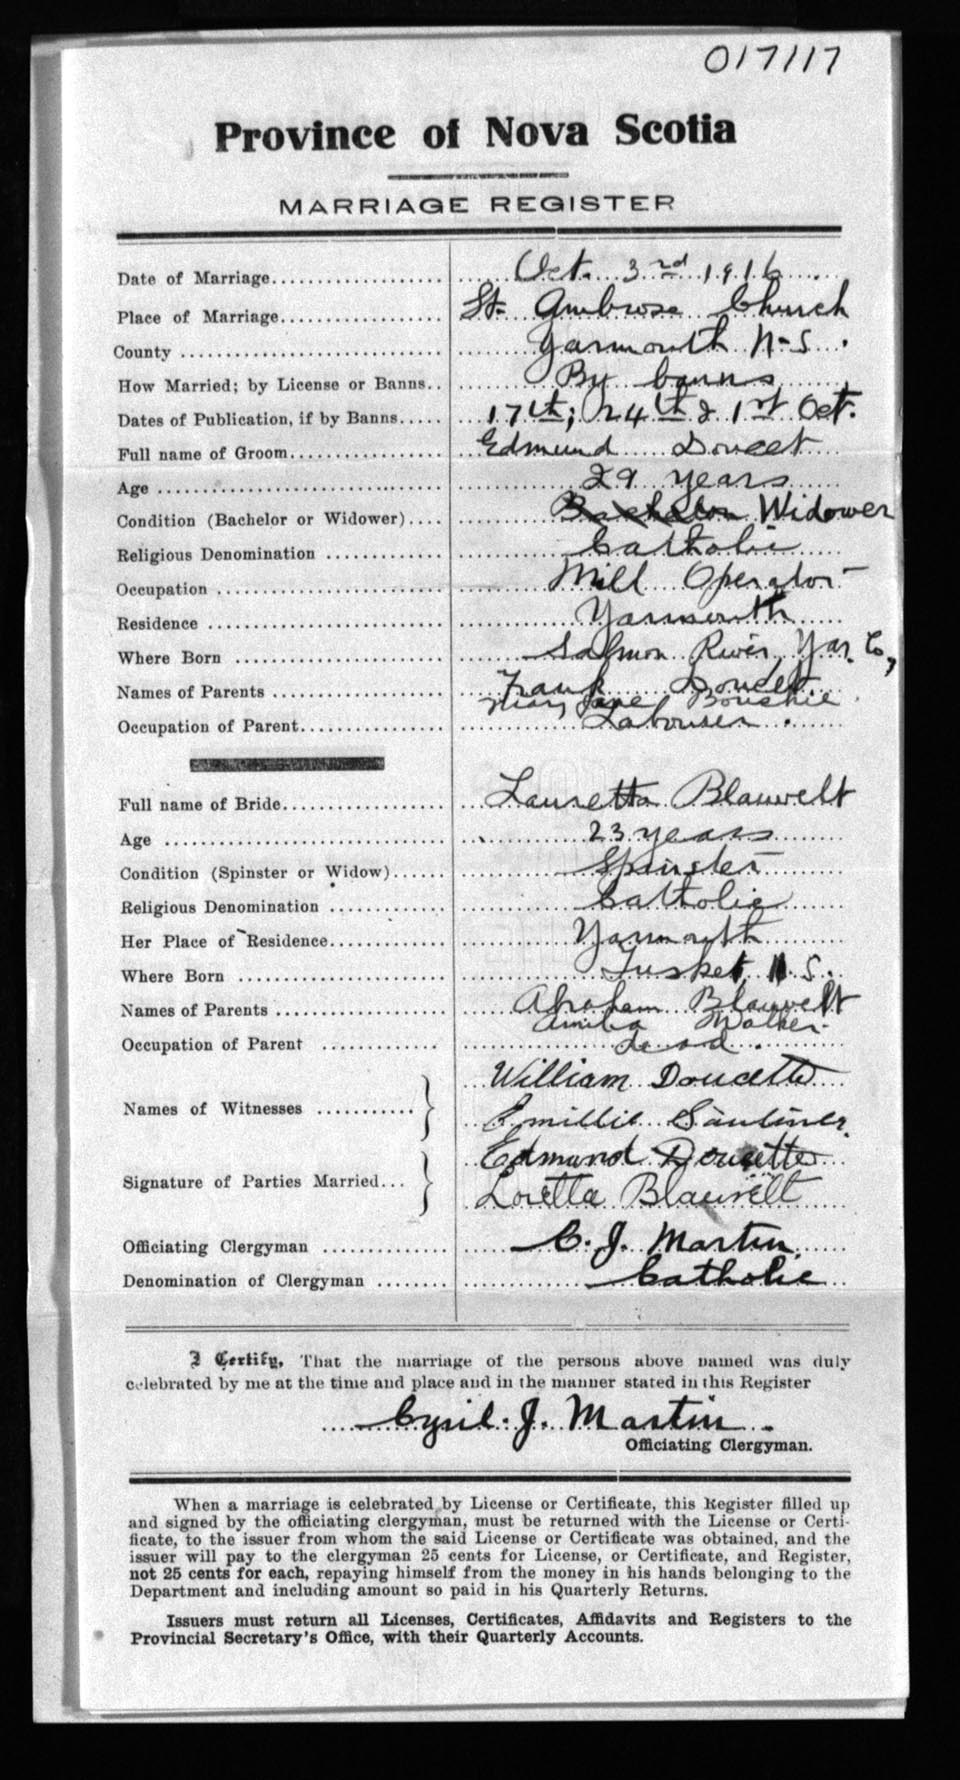 017117
Province of Nova Scotia
MARRIAGE REGISTER
Date of Marriage.................... Oct. 3rd 1916
Place of Marriage................... St. Ambrose Church
County ............................ Yarmouth N-S.
How Married; by License or Banns.. By banns
Dates of Publication, if by Banns..... 17th; 24th & 1st Oct.
Full name of Groom.................. Edmund Doucet
Age ............................... 29 years
Condition (Bachelor or Widower).... Bachelor Widower
Religious Denomination ............ Catholic
Occupation ........................ Mill Operator
Residence ......................... Yarmouth
Where Born ....................... Salmon River, Yar. Co,
Names of Parents .................. Frank Doucet.
Mary Jane Bourkie
Occupation of Parent................ Labourer.
Full name of Bride................... Lauretta Blauvelt
Age ............................... 23 years
Condition (Spinster or Widow)...... Spinster
Religious Denomination ............ Catholic
Her Place of Residence............. Yarmouth
Where Born ....................... Tusket N. S.
Names of Parents .................. Abraham Blauvelt
Amelia Walker
Occupation of Parent .............. Dead.
William Doucette
Names of Witnesses ...........
Emillie Saulnier.
Edmund Doucette
Signature of Parties Married...
Loretta Blauvelt
Officiating Clergyman .............. C. J. Martin.
Denomination of Clergyman ........ Catholic
I Certify, That the marriage of the persons above named was duly
celebrated by me at the time and place and in the manner stated in this Register
Cyril. J. Martin.
Officiating Clergyman.
When a marriage is celebrated by License or Certificate, this Register filled up
and signed by the officiating clergyman, must be returned with the License or Certi-
ficate, to the issuer from whom the said License or Certificate was obtained, and the
issuer will pay to the clergyman 25 cents for License, or Certificate, and Register,
not 25 cents for each, repaying himself from the money in his hands belonging to the
Department and including amount so paid in his Quarterly Returns.
Issuers must return all Licenses, Certificates, Affidavits and Registers to the
Provincial Secretary's Office, with their Quarterly Accounts.